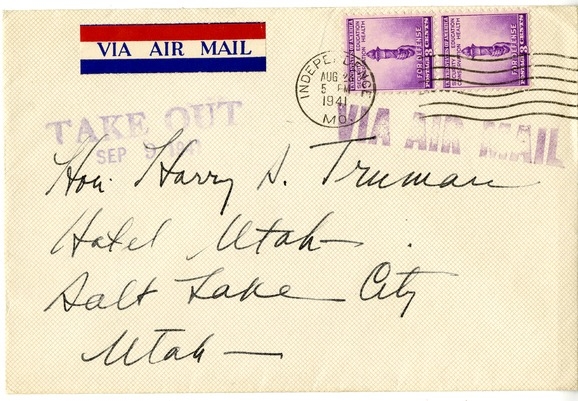 VIA AIR MAIL
UNITED STATES OF AMERICA
SECURITY EDUCATION
CONSERVATION HEALTH
FOR DEFENSE
POSTAGE 3 CENTS
UNITED STATES OF AMERICA
SECURITY EDUCATION
CONSERVATION HEALTH
FOR DEFENSE
POSTAGE 3 CENTS
INDEPENDENCE
AUG
5 PM
1941
MO.
VIA AIR MAIL
TAKE OUT
SEP 9 1941
Hon. Harry S. Truman
Hotel Utah.
Salt Lake City
Utah —